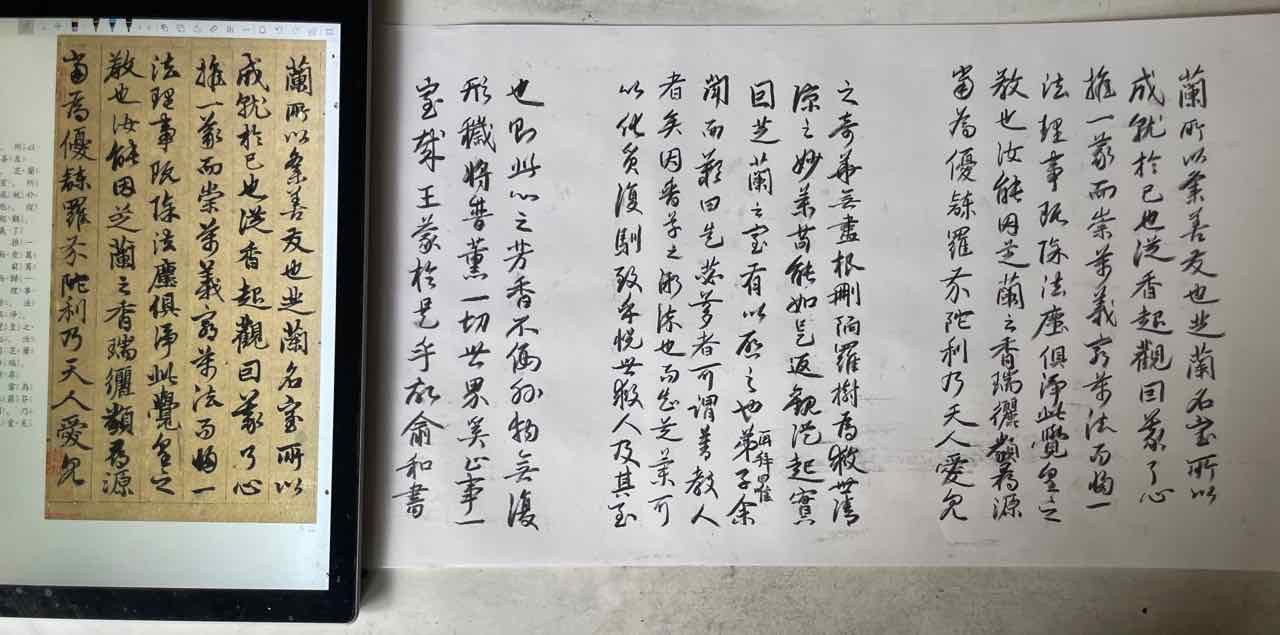 蘭所以集善友也芝蘭名室所以
成就於己也從香起觀回蒙了心
推一蒙而崇萬義窮萬法而歸一
法理事既除法塵俱淨此覺皇之
教也汝能因芝蘭之香瑞為源
當為優鉢羅芬陀利乃天人愛見
蘭所以集善友也芝蘭名室所以
成就於己也從香起觀回蒙了心
推一蒙而崇萬義窮萬法而歸一
法理事既除法塵俱淨此覺皇之
教也汝能因芝蘭之香瑞為源
當為優鉢羅芬陀利乃天人愛見
之奇華無盡根刪陏羅樹為救世清
涼之妙藥苗能如是返觀從起實
回芝蘭之室有以啟之也弟子再拜余
聞而難曰苾蒭者可謂善教人
者矣因香字之滌染也而知芝蘭可
以化貧復馴致乎悅世救人及其至
也則此心之芳香不假外物無復
形穢將普薰一切世界矣止事一
室哉王蒙於是乎敬俞和書